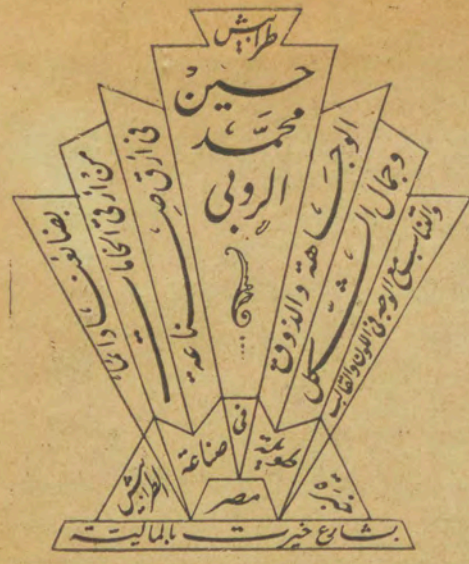 طرابيش
حسين
محمد
الروبي
الوجاهة والذوق
وجمال الشكل
والتناسب مع الوجه في اللون والقالب
في أرقى صناعة
من أرقى الخامات
في
صناعة
طويلة
الطرابيش
مصر
خبرة
بشارع خيرت بالمالية